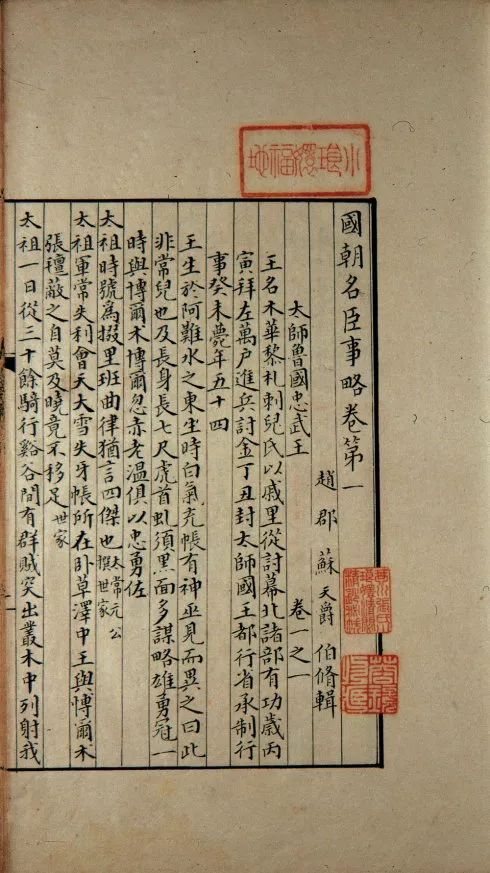 小琅嬛福地
國朝名臣事略卷第一
趙郡蘇天爵伯脩輯
太師魯國忠武王 卷一之一
王名木華黎札剌兒氏以戚里從討幕北諸部有功歲丙
寅拜左萬戶進兵討金丁丑封太師國王都行省承制行
事癸未薨年五十四
王生於阿難水之東生時白氣充帳有神巫見而異之曰此
非常兒也及長身長七尺虎首虬須黑面多謀略雄勇冠一
時與博爾朮博爾忽赤老溫俱以忠勇佐
太祖時號為掇里班曲律猶言四傑也太常元公撰世家
太祖軍常失利會天大雪失牙帳所在卧草澤中王與博爾朮
張氊蔽之自莫及曉竟不移足世家
太祖一日從三十餘騎行谿谷間有群賊突出叢木中列射我